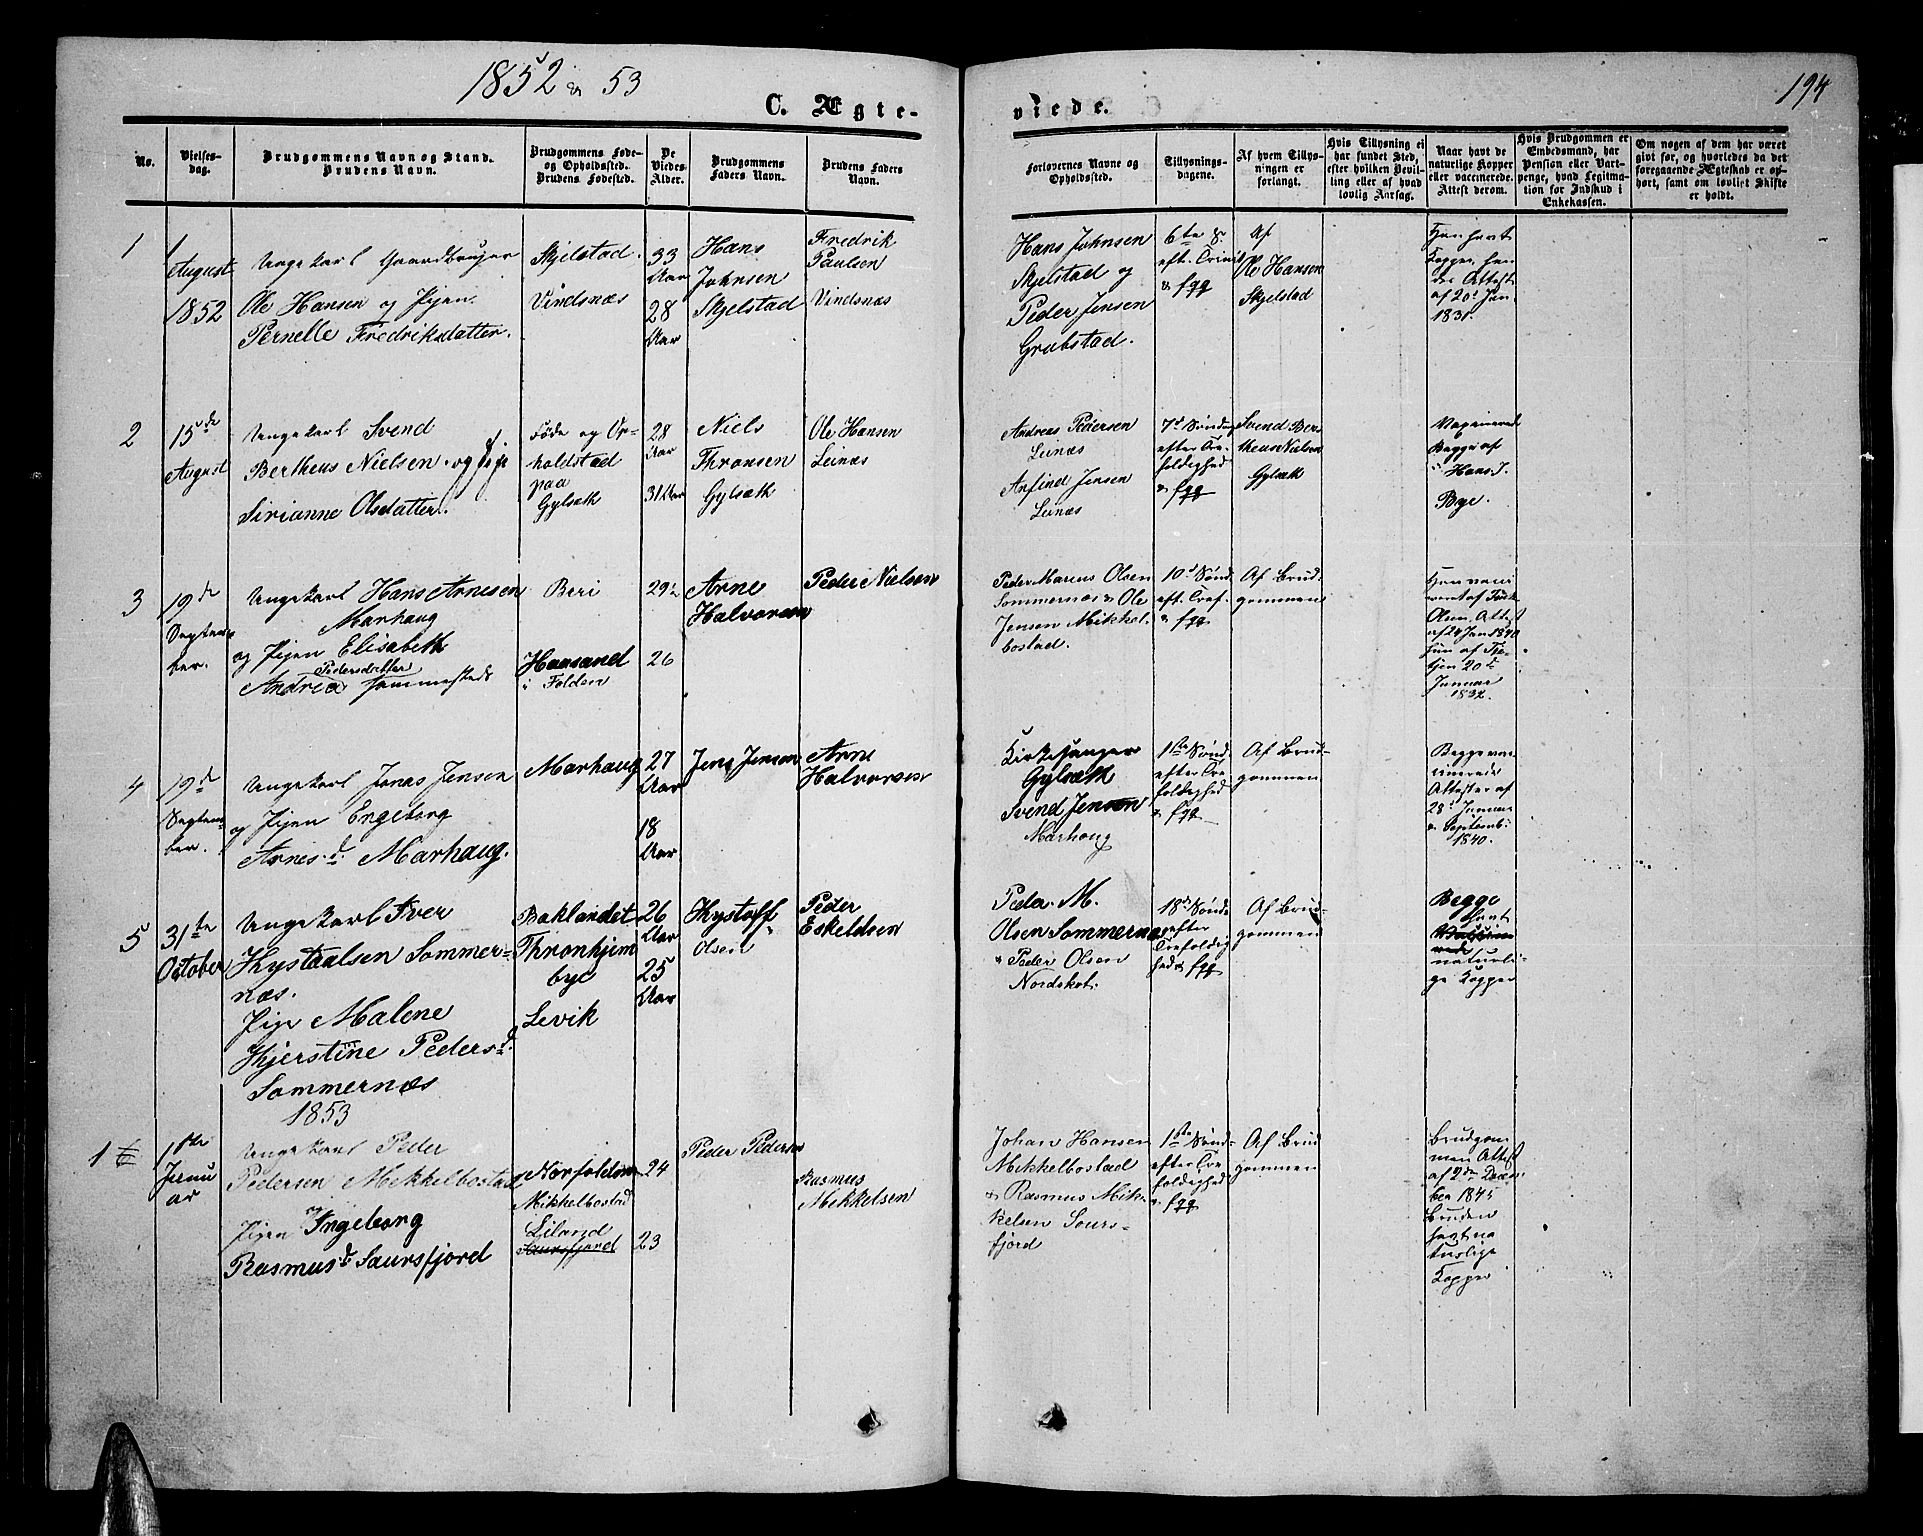 1852 & 53
194
C. Ægte-
viede.
No.
Vielses-
dag.
Brudgommens Navn og Stand.
Brudens Navn.
Brudgommens Føde-
og Opholdssted.
Brudens Fødested.
De
Viedes
Alder.
Brudgommens
Faders Navn.
Brudens Faders
Navn.
Forlovernes Navne og
Opholdssted.
Tillysnings-
dagene.
Af hvem Tillys-
ningen er
forlangt.
Hvis Tillysning ei
har fundet Sted,
efter hvilken Bevil-
ling eller af hvad
lovlig Aarsag.
Naar havt de
naturlige Kopper
eller vaccinerede.
Attest derom.
Hvis Brudgommen er
Embedsmand, har
Pension eller Vart-
penge, hvad Legitima-
tion for Indskud i
Enkekassen.
Om nogen af dem har været
gift før, og hvorledes da det
foregaaende Ægteskab er op-
hørt, samt om lovligt Skifte
er holdt.
1
1
August
1852
Ungekarl Gaardbruger
Ole Hansen og Pigen
Pernelle Fredriksdatter.
Skjelstad.
Vindsnæs
33
Aar
28
Aar
Hans
Johnsen
Skjelstad
Fredrik
Paulsen
Vindsnæs
Hans Johnsen
Skjelstad og
Peder Jensen
Grubstad.
6te S.
eft. Trinit
& fgg
Af
Ole Hansen
Skjelstad
Han havt
Kopper, hen
des Attest
af 20d Jan.
1831.
2
15de
August
Ungekarl Svend
Bertheus Nielsen og Pige
Sirianne Olsdatter.
Føde og Op-
holdstad
paa
Gylseth
28
Aar
31 Aar
Niels
Thronsen
Gylsæth
Ole Hansen
Leinæs
Andreas Pedersen
Leinæs
Anfind Jensen
Leinæs
7d Søndag
efter Tre-
foldighed
& fgg
Svend Ber-
theus Nielsen
Gylsæth
Begge af
Hans J.
Bye.
3
19de
Septem-
ber.
Ungekarl Hans Arnesen
Marhaug
og Pigen Elisabeth
Pedersdatter
Andrea
Beri
Haasand
i Folden
29½
26
Arne
Halvorsen
Peder Nielsen
Peder Marcus Olsen
Sommernæs & Ole
Jensen Mikkel-
bostad.
10d Sønd.
eft. Tref.
& fgg.
Af Brud-
gommen
Olsen, Attest
af 24 Jan 1840
hun af
20d
Januar
1832.
4
19d
Septem-
ber.
Ungekarl Jonas Jensen
og Pigen Engeborg
Arnes.d. Marhaug.
Marhaug
27
Aar
18
Aar
Jens Jensen
Arne
Halvorsen
Kirkesanger
Gylsæth
Svend Jensen
Marhaug
1ste Sønd.
efter Tre-
foldighed
& fgg.
Af Brud-
gommen
Begge vac-
cinerede
Attester af
28d Januar
& Septemb:
1840.
5
31te
October
Ungekarl Iver
Khystaalsen Sommer-
næs.
Pige Malene
Khjerstine Peders.d.
Sommernæs
Baklandet
Thronhjem
bye
Levik
26
Aar
25
Aar
Khystoff
Olsen
Peder
Eskeldsen
Peder M.
Olsen Sommernæs
& Peder Olsen
Nordskot.
18de Sønd.
efter
Trefoldig
hed & fgg
Af Brud-
gommen
Begge
havt
naturli-
ge Kopper
1853
1
1ste
Janu
ar
Ungekarl Peder
Pedersen Mikkelbostad
og
Pigen Ingeborg
Rasmusd. Saursfjord
Norfolden
Mikkelbostad
Liland
Saursfjord
24
23
Peder Pedersen
Rasmus
Mekkelsen
Johan Hansen
Mikkelbostad
& Rasmus Mik-
kelsen Saurs-
fjord
1ste Sønd-
efter Tre
foldighed
& fgg
Af Brud
gommen
Brudgom
men Attest
af 2den Decem
ber 1845
Bruden
havt na
turlige
Kopper